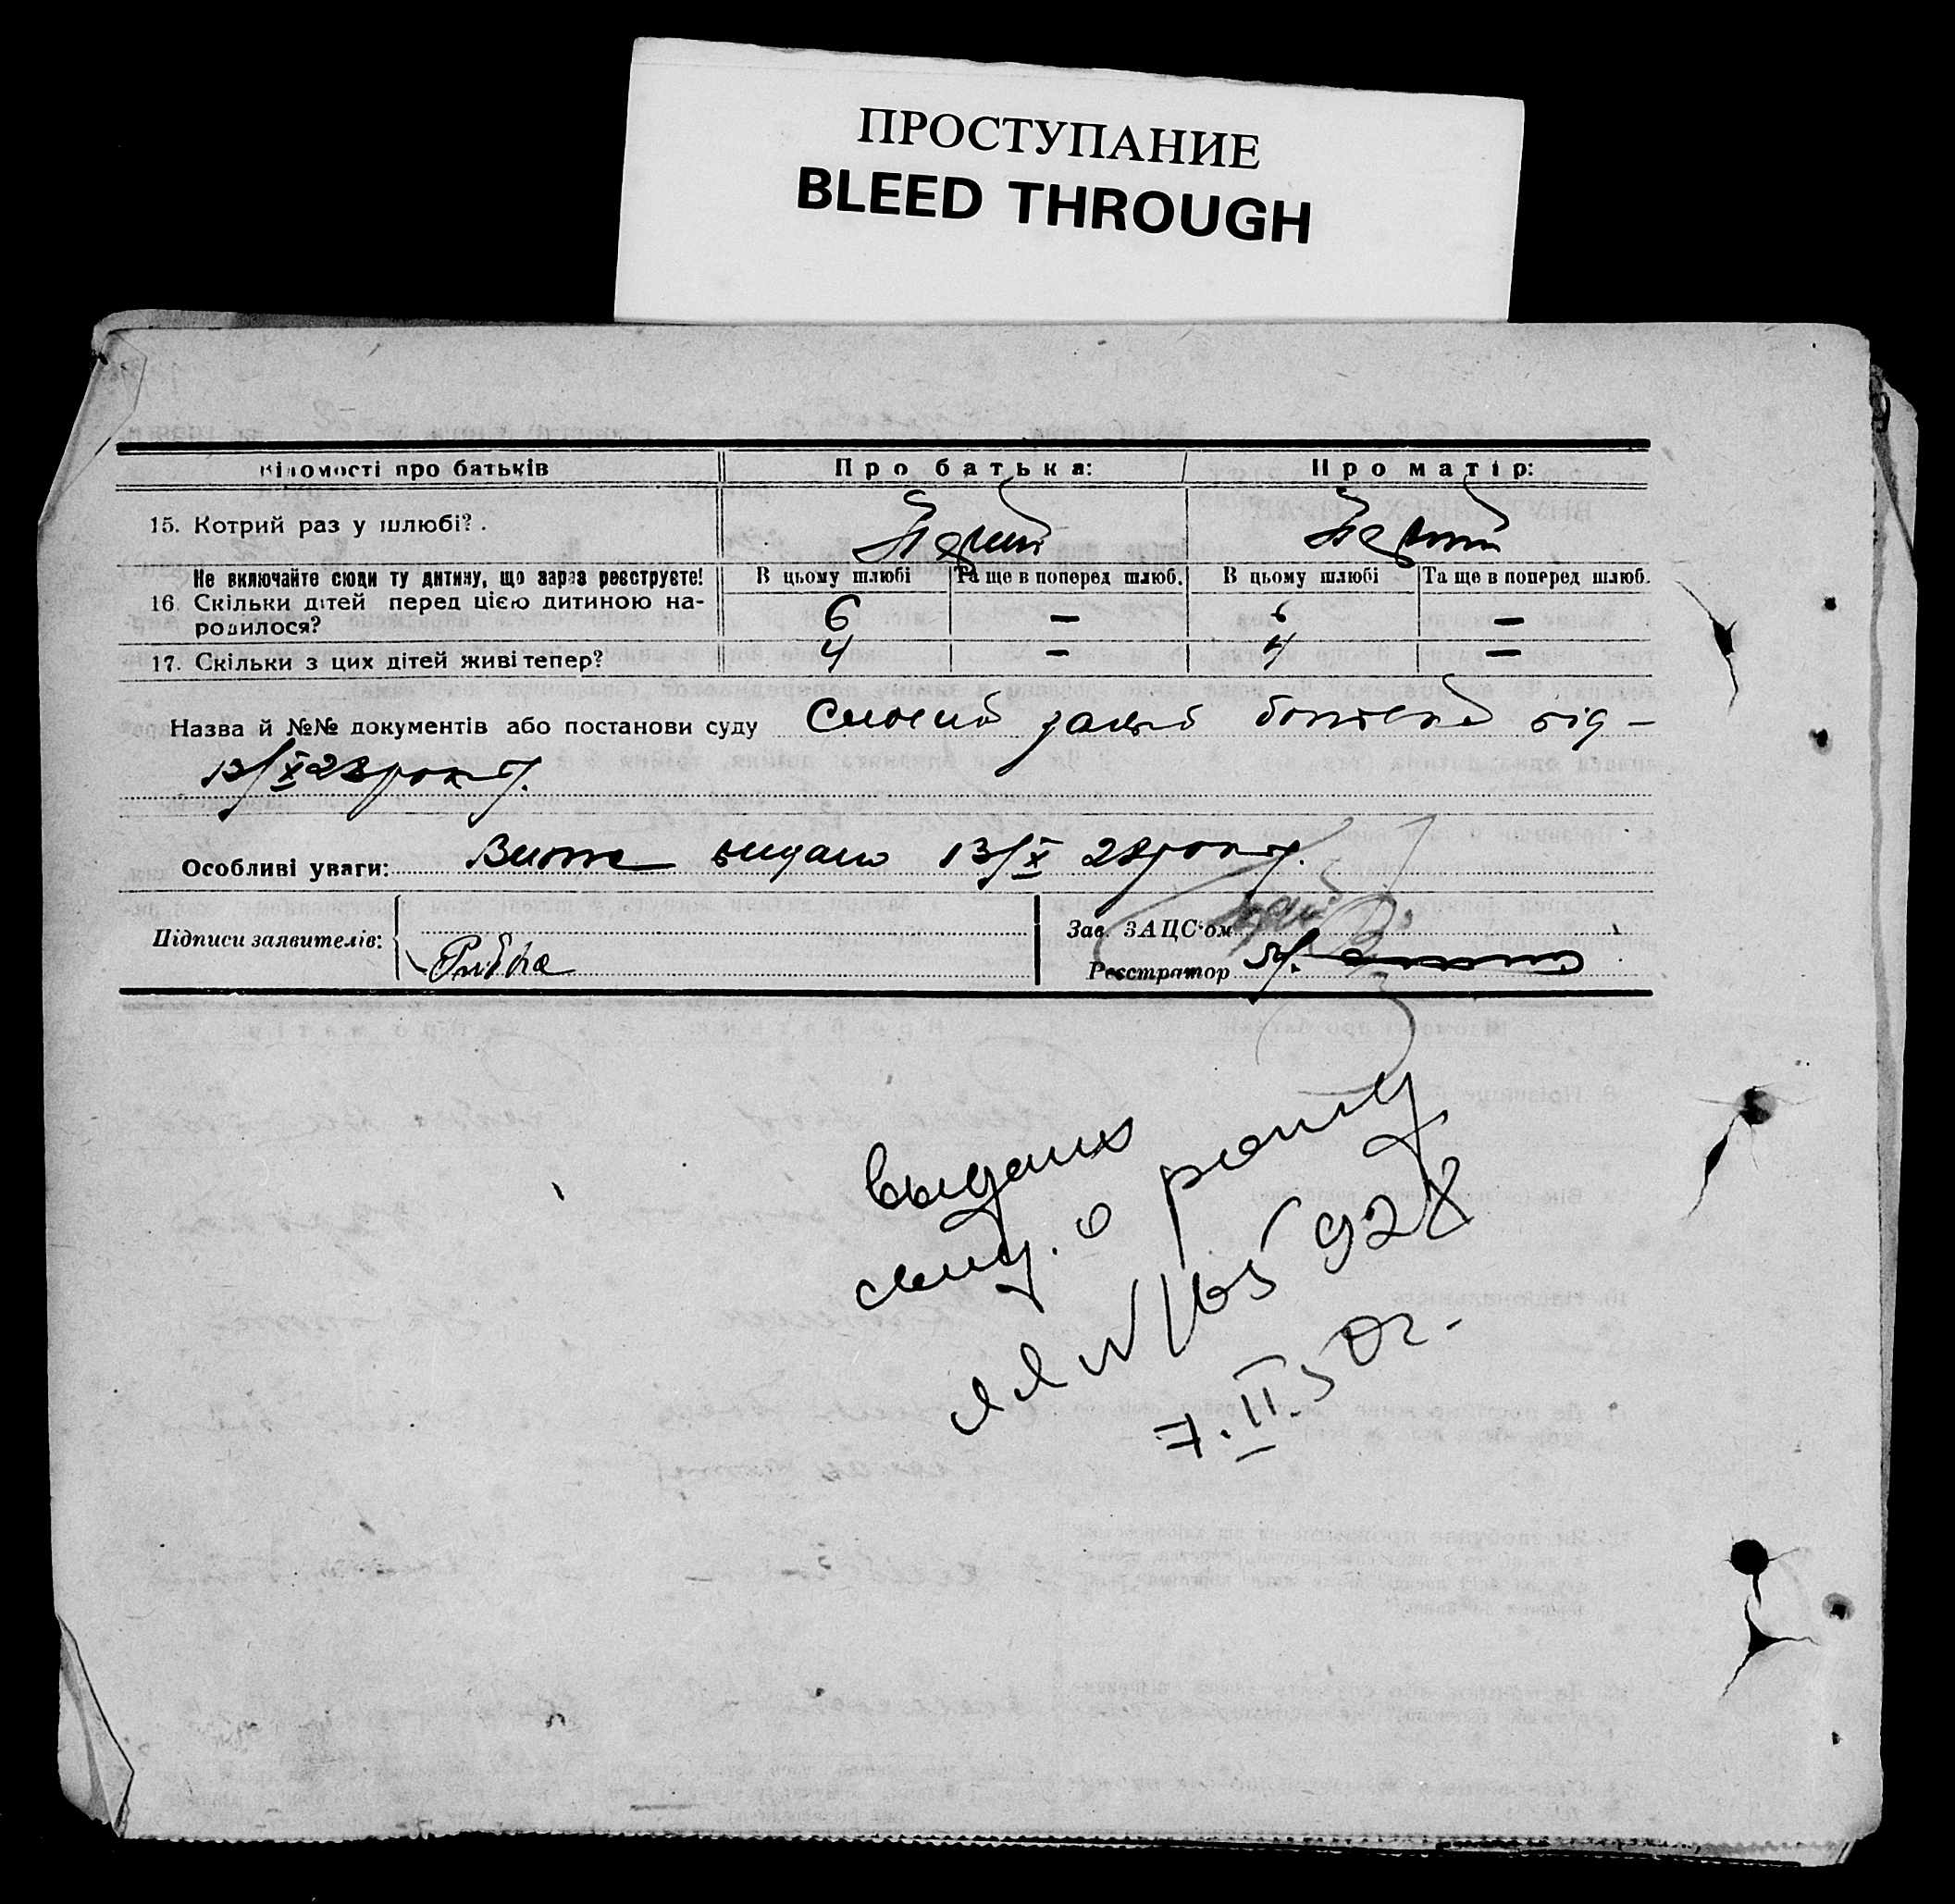 ПРОСТУПАНИЕ
BLEED THROUGH
Відомості про батьків
Про батька:
Про матір:
15. Котрий раз у шлюбі?
Перший
Перший
Не включайте сюди ту дитину, що зараз реєструєте!
В цьому шлюбі
Та ще в поперед шлюб.
В цьому шлюбі
Та ще в поперед шлюб.
16. Скільки дітей перед цією дитиною на-
родилося?
6
—
6
—
17. Скільки з цих дітей живі тепер?
4
—
4
—
Назва й №№ документів або постанови суду заява батька від —
13/X 28 року.
Особливі уваги: Витяг видано 13/X 28 року.
Підписи заявителів:
Зав. ЗАЦС'ом
Реєстратор
выдано
свид. о рожд
ЯЯ № 165928
7.II.50г.